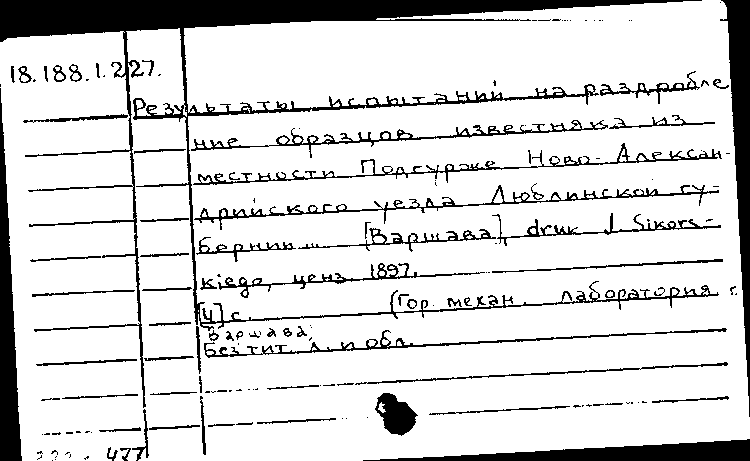 18.188.1.227.
Результаты испытаний на раздробле
ние образцов известняка из
местности Подгурже Ново-Алексан-
дрийского уезда Люблинской гу-
бернии... [Варшава], druk J. Sikors-
kiego, ценз. 1897.
[4] с. (Гор. механ. лаборатория г.
Варшава)
Без тит. л. и обл.
477